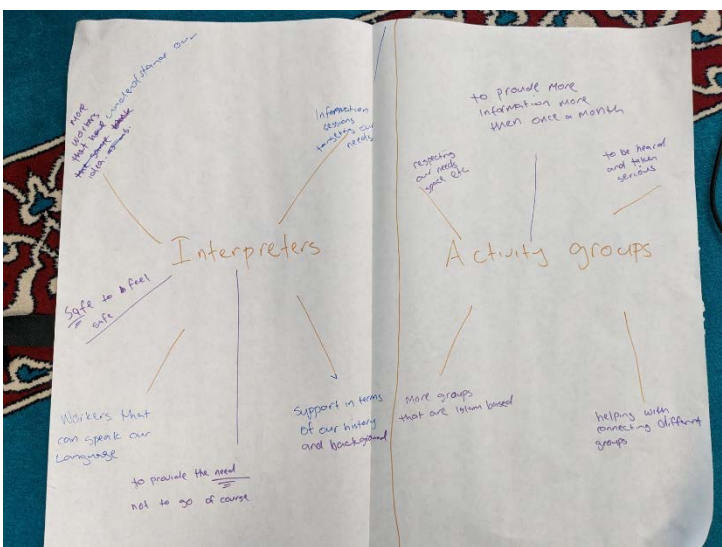 More
workers
that have understand our
idea.
Information
sessions
targeting our
needs
Interpreters
Safe to feel
safe
Workers that
can speak our
Language
to provide the need
not to go of course
Support in terms
of our history
and background
to provide More
information more
then once a month
respecting
our needs
space etc
to be heard
and taken
serious
Activity groups
More groups
that are islam based
helping with
connecting different
groups